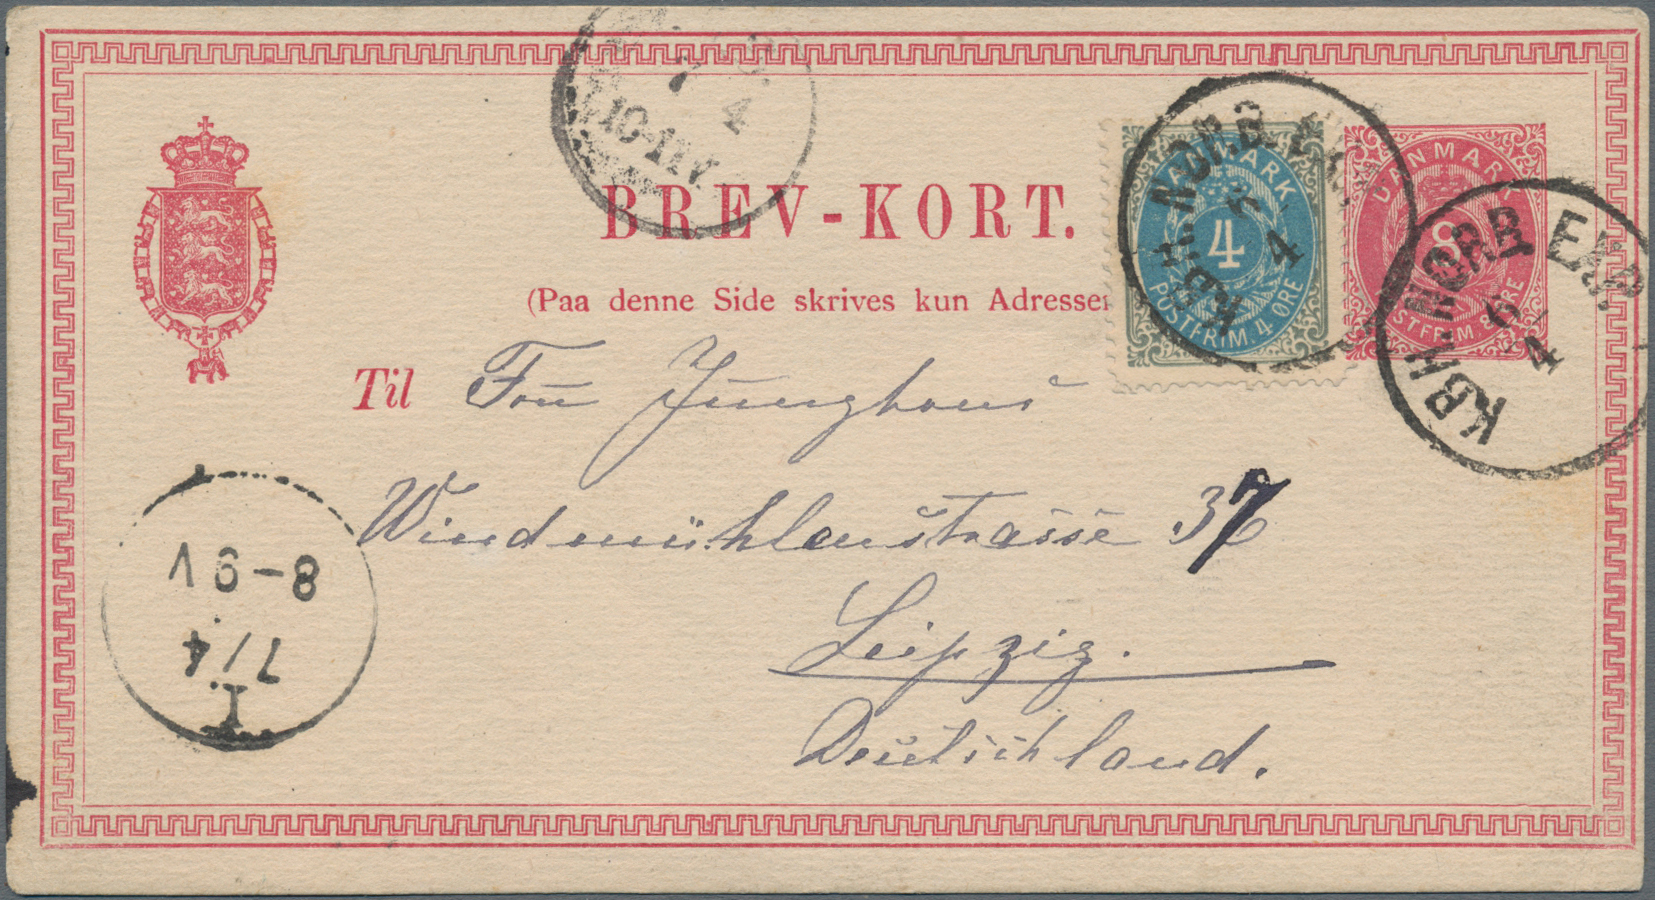 7
4
10-11V
BREV-KORT.
(Paa denne Side skrives kun Adressen
DANMARK
4
POSTFRIM. 4 ØRE
KBH. NORB. EXP.
4
DANMARK
8
POSTFRIM 8 ØRE
KBH. NORB EXP.
6/4
Til Frau Junghans
Windmühlenstrasse 37
Leipzig.
Deutschland.
I
7/4
8-9V